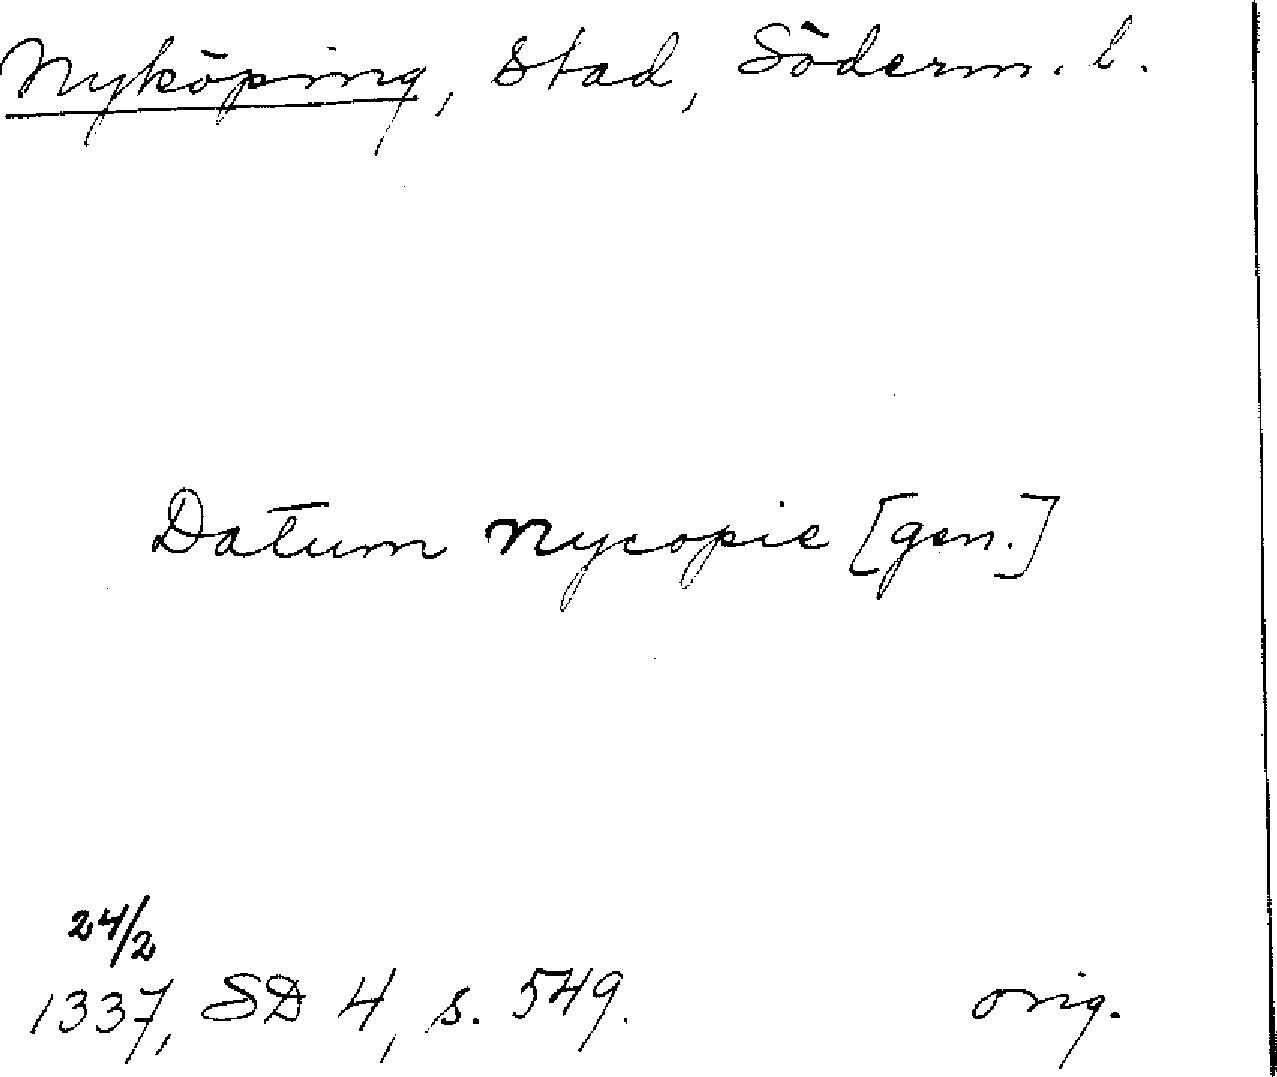 Nyköping, Stad, Söderm. l.
Datum Nycopie [gen.]
24/2
1337, SD 4, s. 549. orig.